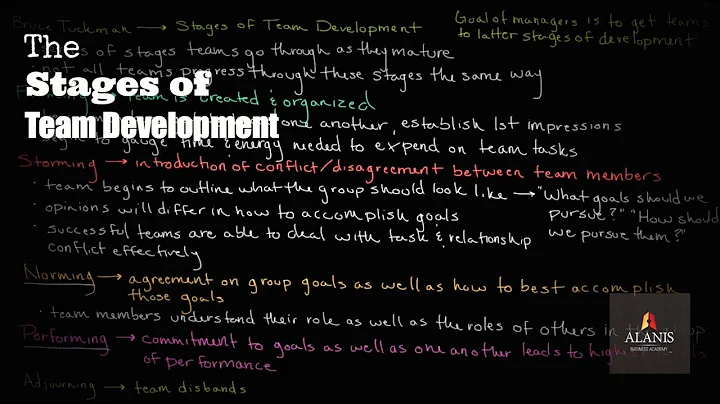 Bruce Tuckman → Stages of Team Development
Goal of managers is to get teams
to latter stages of development
The
Stages of
Team Development
of stages teams go through as they mature
not all teams progress through these stages the same way
team is created & organized
one another, establish 1st impressions
to gauge time & energy needed to expend on team tasks
Storming → introduction of conflict/disagreement between team members
· team begins to outline what the group should look like → "What goals should we
pursue?" "How should
we pursue them?"
· opinions will differ in how to accomplish goals
· successful teams are able to deal with task & relationship
conflict effectively
Norming → agreement on group goals as well as how to best accomplish
those goals
· team members understand their role as well as the roles of others in
Performing → commitment to goals as well as one another leads to high
of performance
ALANIS
BUSINESS ACADEMY
Adjourning → team disbands